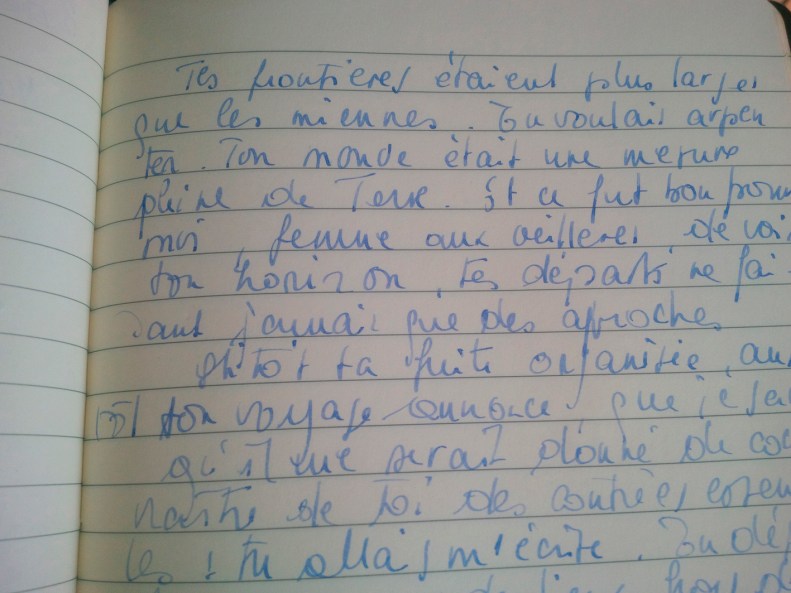 Tes frontières étaient plus larges
que les miennes. Tu voulais arpen
ter. Ton monde était une mesure
pleine de Terre. Et ce fut bon pour
moi, femme aux œillères, de voi
ton horizon, tes départs ne fai-
sant jamais que des approches
sitôt ta fuite organisée, au
tôt ton voyage annoncé, que je sa
qu'il me serait donné de co
naître de toi des contrées
les : tu allais m'écrire. Tu dé